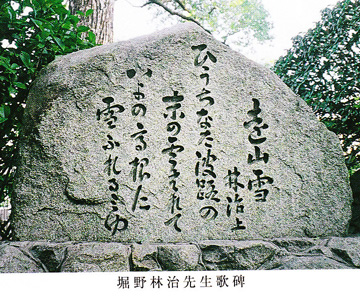 遠山雪
林治
ひうちなだ波路の
末の雲それて
いよの高根に
雪ふれるみゆ
堀野林治先生歌碑